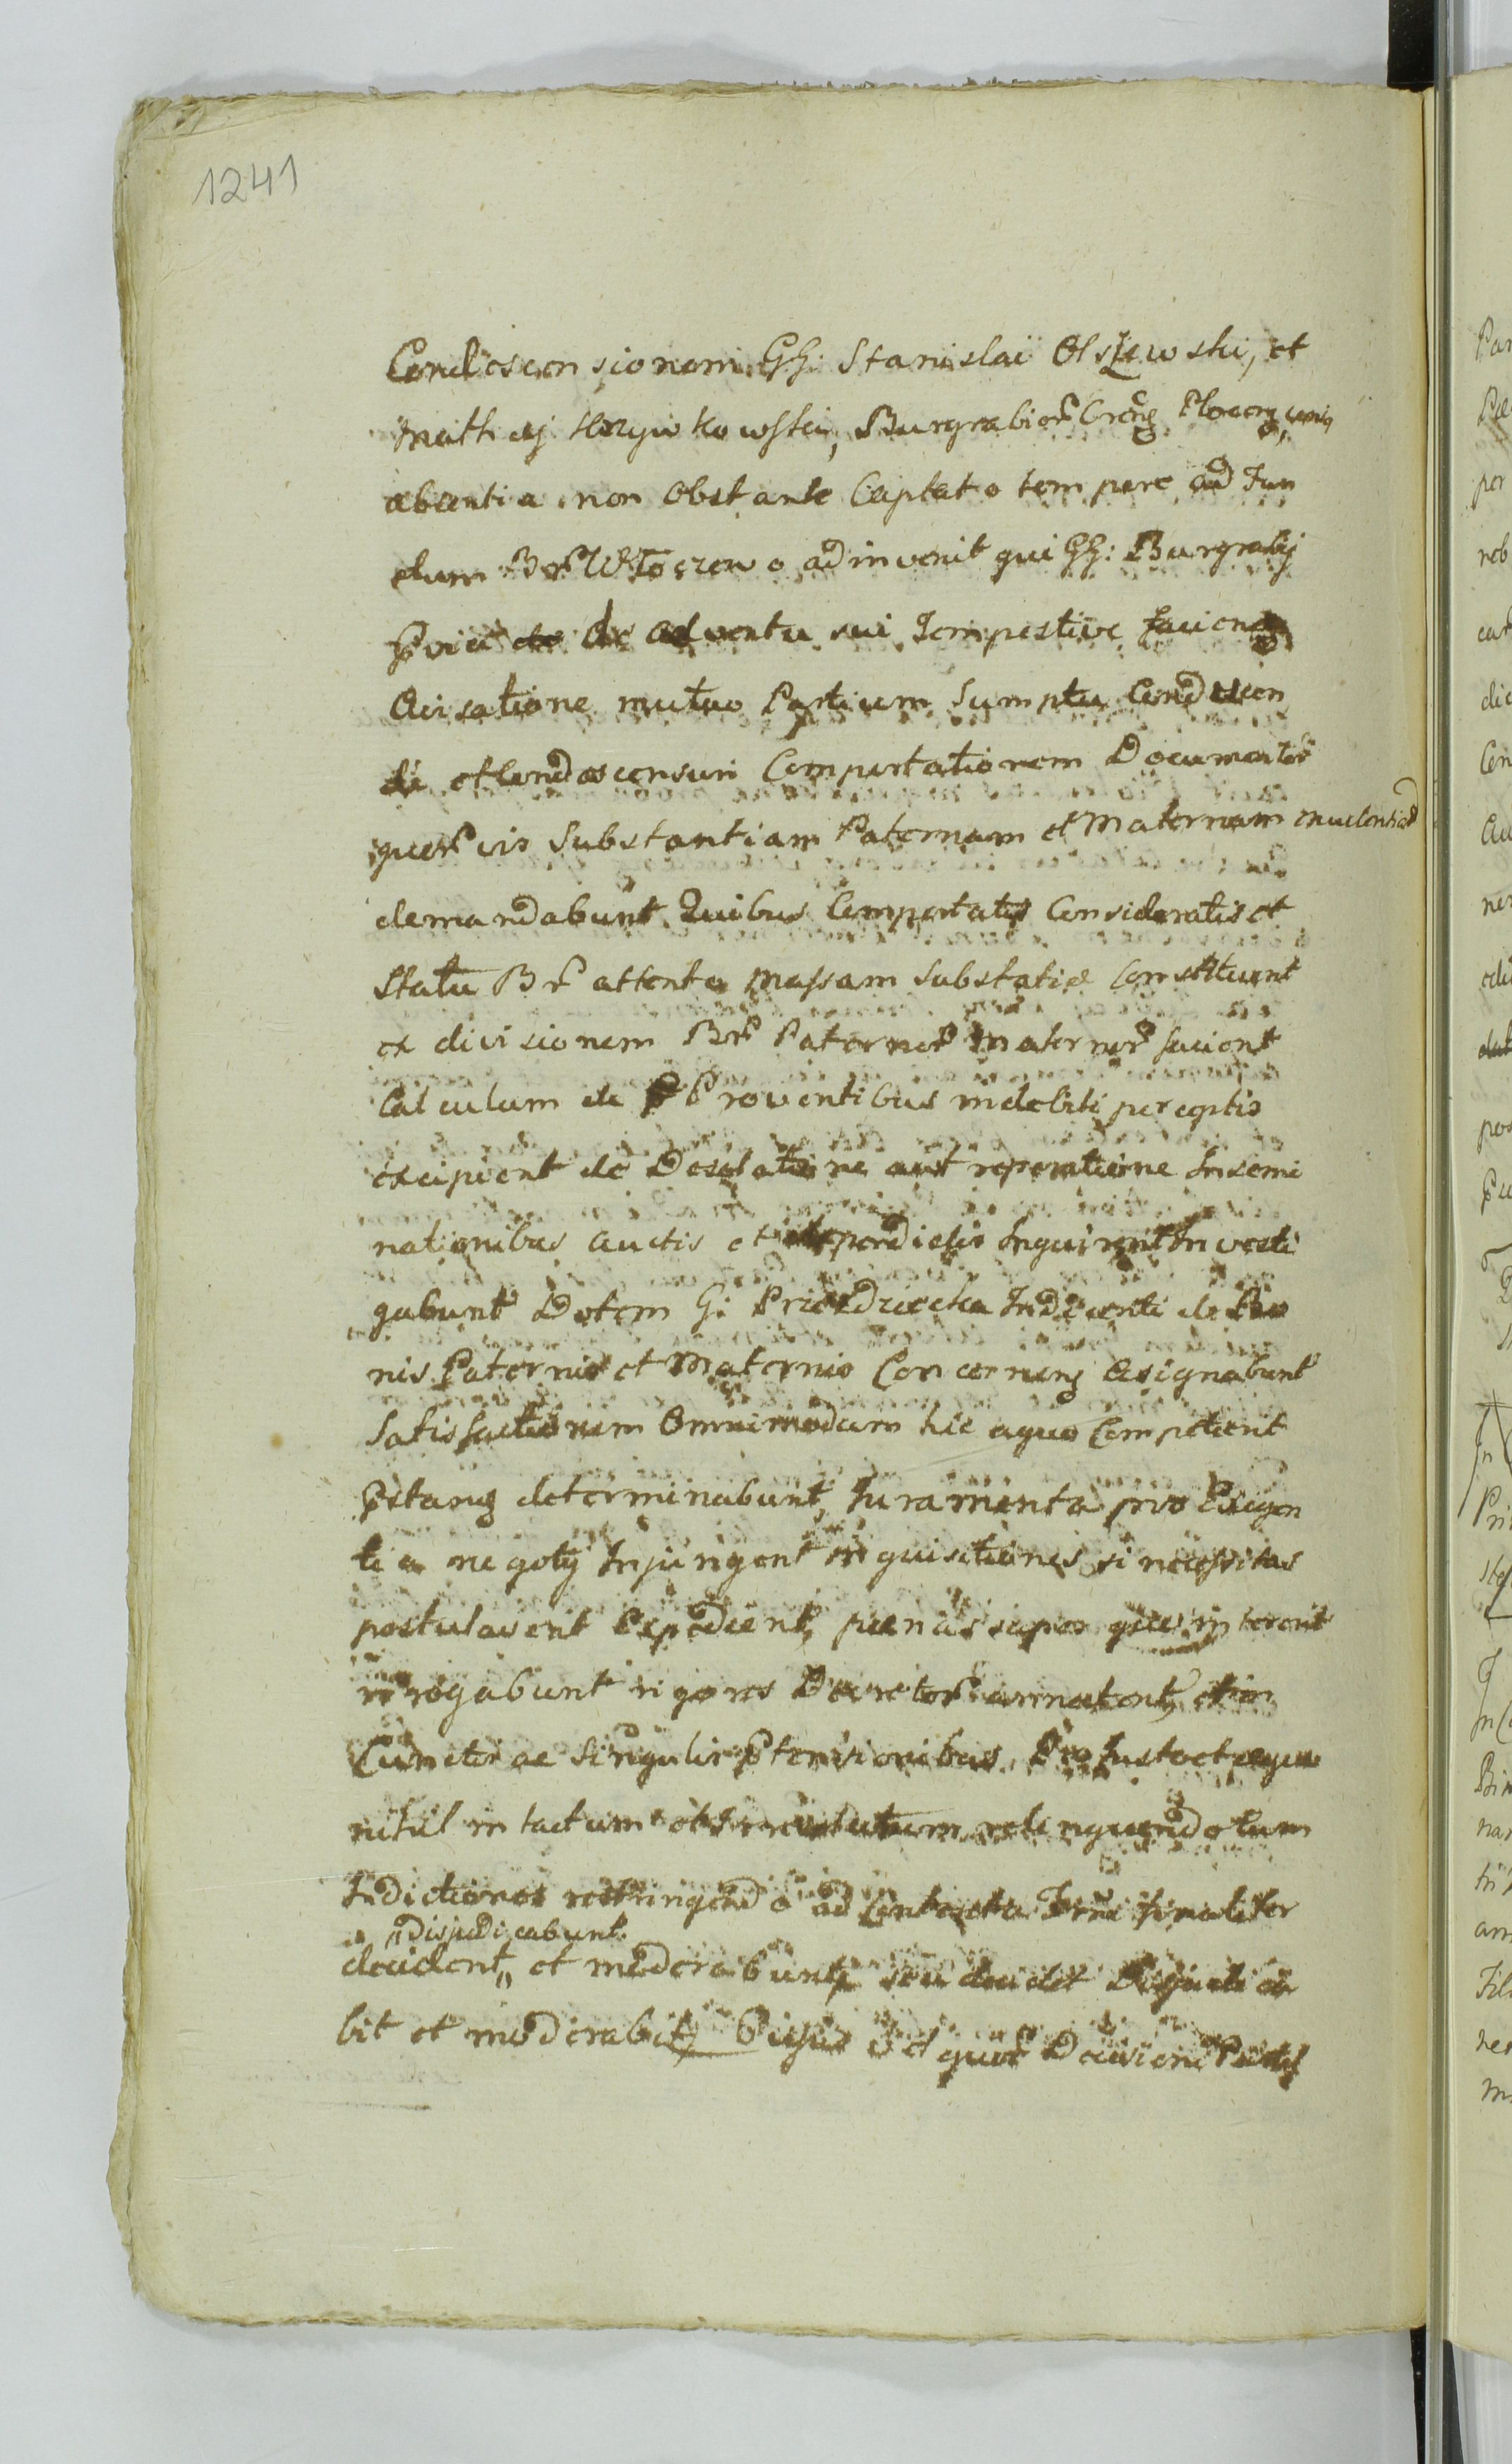 1241
Condescensionem GG: Stanislai Olszewski, et
Mathej Krzywkowski, Burgrabior Crens Plocens, unis
absentia non Obstante Captato tempore ad Fun
dum Br Włoszewo adinvenit qui GG: Burgrabij
pvia de adventu sui Tempestive faciend
Avisatione mutuo Partium Sumptu Condescen
di et Condescensuri Comportationem Documentor
quorvis Substantiam Paternam et Maternam
demandabunt Quibus Comportatis Consideratis et
Statu Br attento Massam Substatiæ Constituent
ex divisionem Bor Paternor Maternor facient
Calculum de Proventibus indebiti perceptis
excipient de Desolatione aut reparatione Insemi
nationibus Auctis et deperdictis Inquirent Investi
gabunt Dotem G: Indicenti de Bo
nis Paternis et Maternis Concernens Assignabunt
Satisfactionem Omnimodam hic aquo Competent
determinabunt, Juramenta pro Exigen
tia negotij Injungent inquisitiones si necessitas
postulaverit Expedient, penas super quas intererit
irrogabunt rigores Decretor
Cunctis ac Singulis ptensionibus Ex Justo et aequo
nihil intactum et irresolutum relinquendo tum
Indictiones restringendo ad Contexta Finaliter
disjudicabunt
decident, et moderabunt seu decidet Disjudica
bit et moderabit Cujus et quor Decisioni Partes